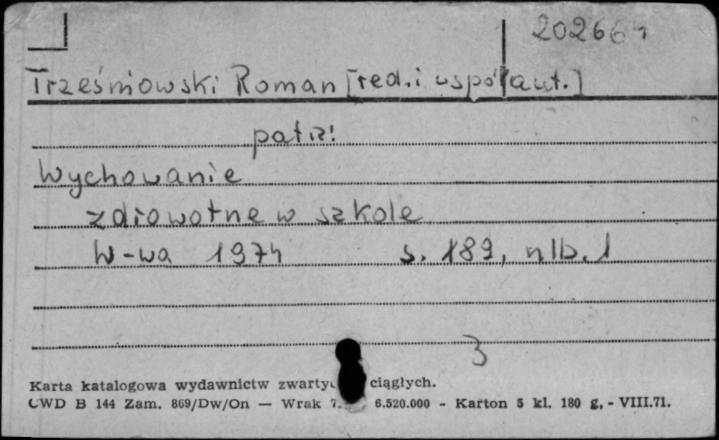 202661
Trześniowski Roman [red. i współaut.]
patrz!
Wychowanie
zdrowotne w szkole
W-wa 1974 s. 189, nlb. 1
3
Karta katalogowa wydawnictw ciągłych.
CWD B 144 Zam. 869/Dw/On — Wrak 6.520.000 - Karton 5 kl. 180 g, - VIII.71.